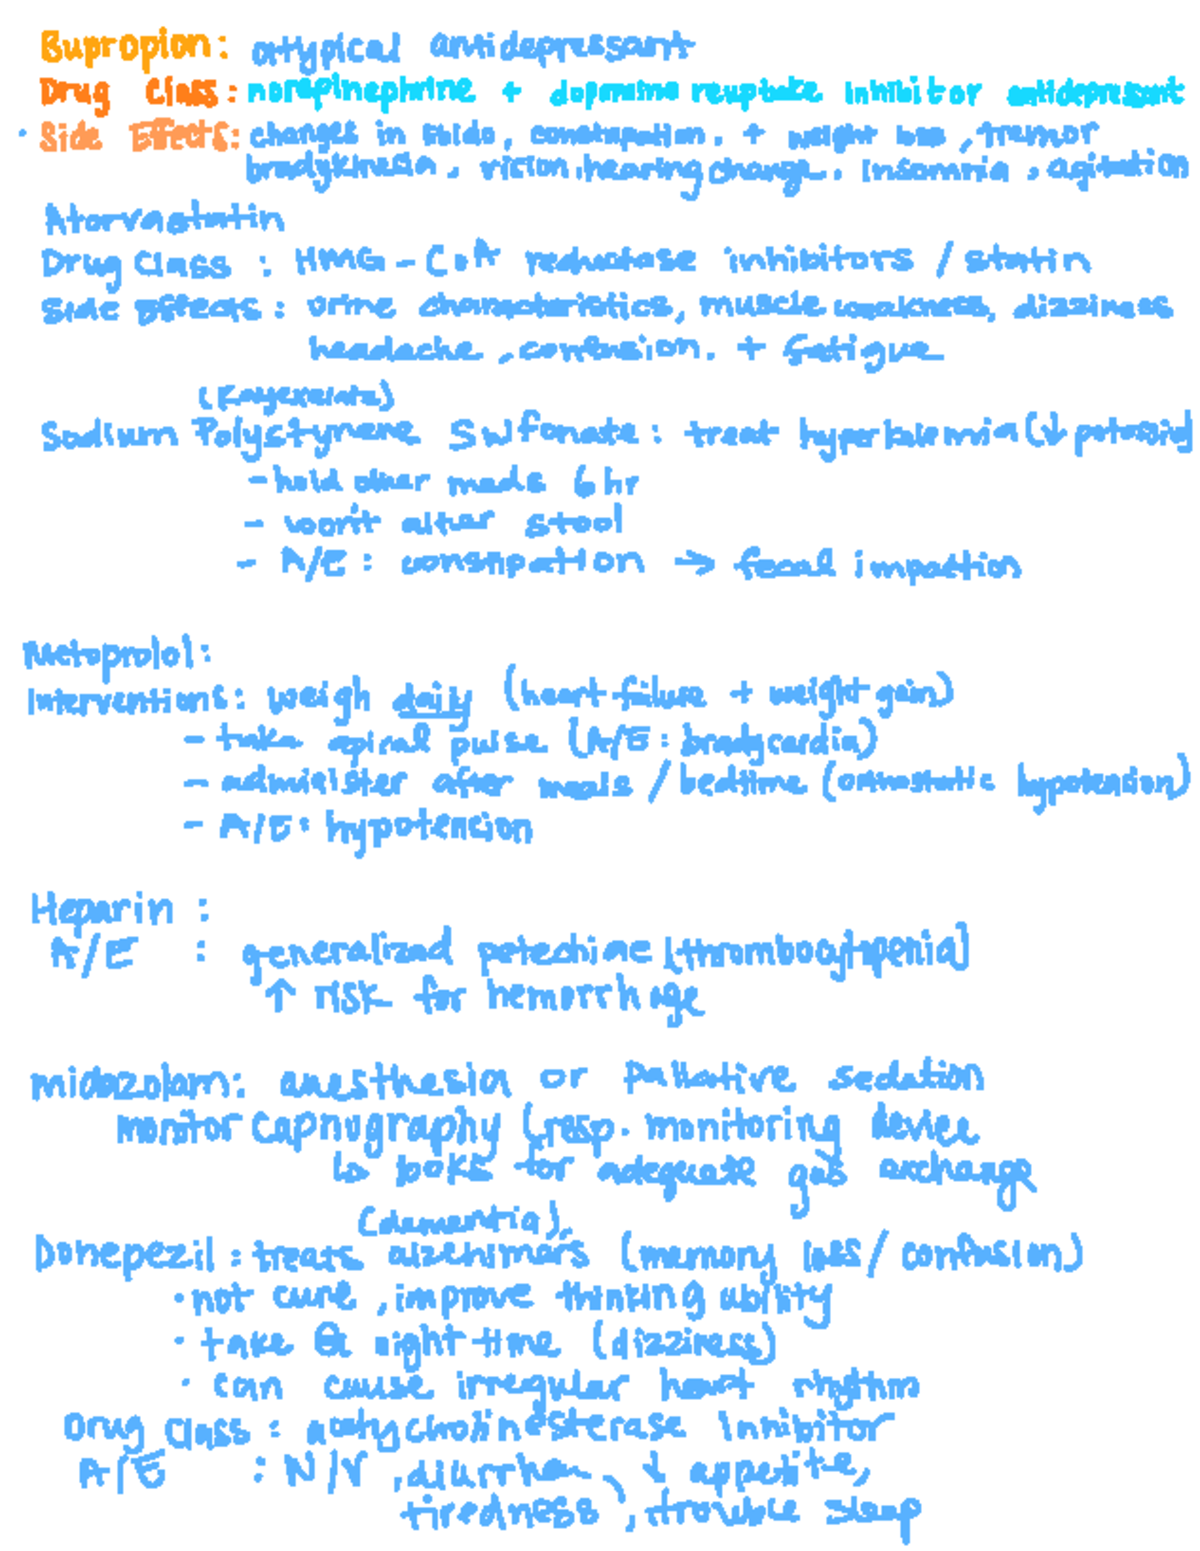 Bupropion: atypical antidepressant
Drug Class: norepinephrine + dopamine reuptake inhibitor antidepressant
• Side Effects: changes in libido, constipation, + weight loss, tremor
bradykinesia, vision, hearing change, insomnia, agitation
Atorvastatin
Drug Class: HMG-CoA reductase inhibitors / statin
Side Effects: urine characteristics, muscle weakness, dizziness
headache, confusion, + fatigue
(Kayexelate)
Sodium Polystyrene Sulfonate: treat hyperkalemia (↓ potassiu
- hold other meds 6 hr
- won't alter stool
- A/E: constipation → fecal impaction
Metoprolol:
Interventions: weigh daily (heart failure + weight gain)
- take apical pulse (A/E: bradycardia)
- administer after meals / bedtime (orthostatic hypotension)
- A/E: hypotension
Heparin:
A/E : generalized petechiae [thrombocytopenia]
↑ risk for hemorrhage
midazolam: anesthesia or palliative sedation
monitor capnography (resp. monitoring device
↳ looks for adequate gas exchange
(dementia),
Donepezil: treats alzehimers (memory loss / confusion)
• not cure, improve thinking ability
• take @ night time (dizziness)
• can cause irregular heart rhythm
Drug Class: acetycholinesterase Inhibitor
A/E : N/V, diarrhea, ↓ appetite,
tiredness, trouble sleep